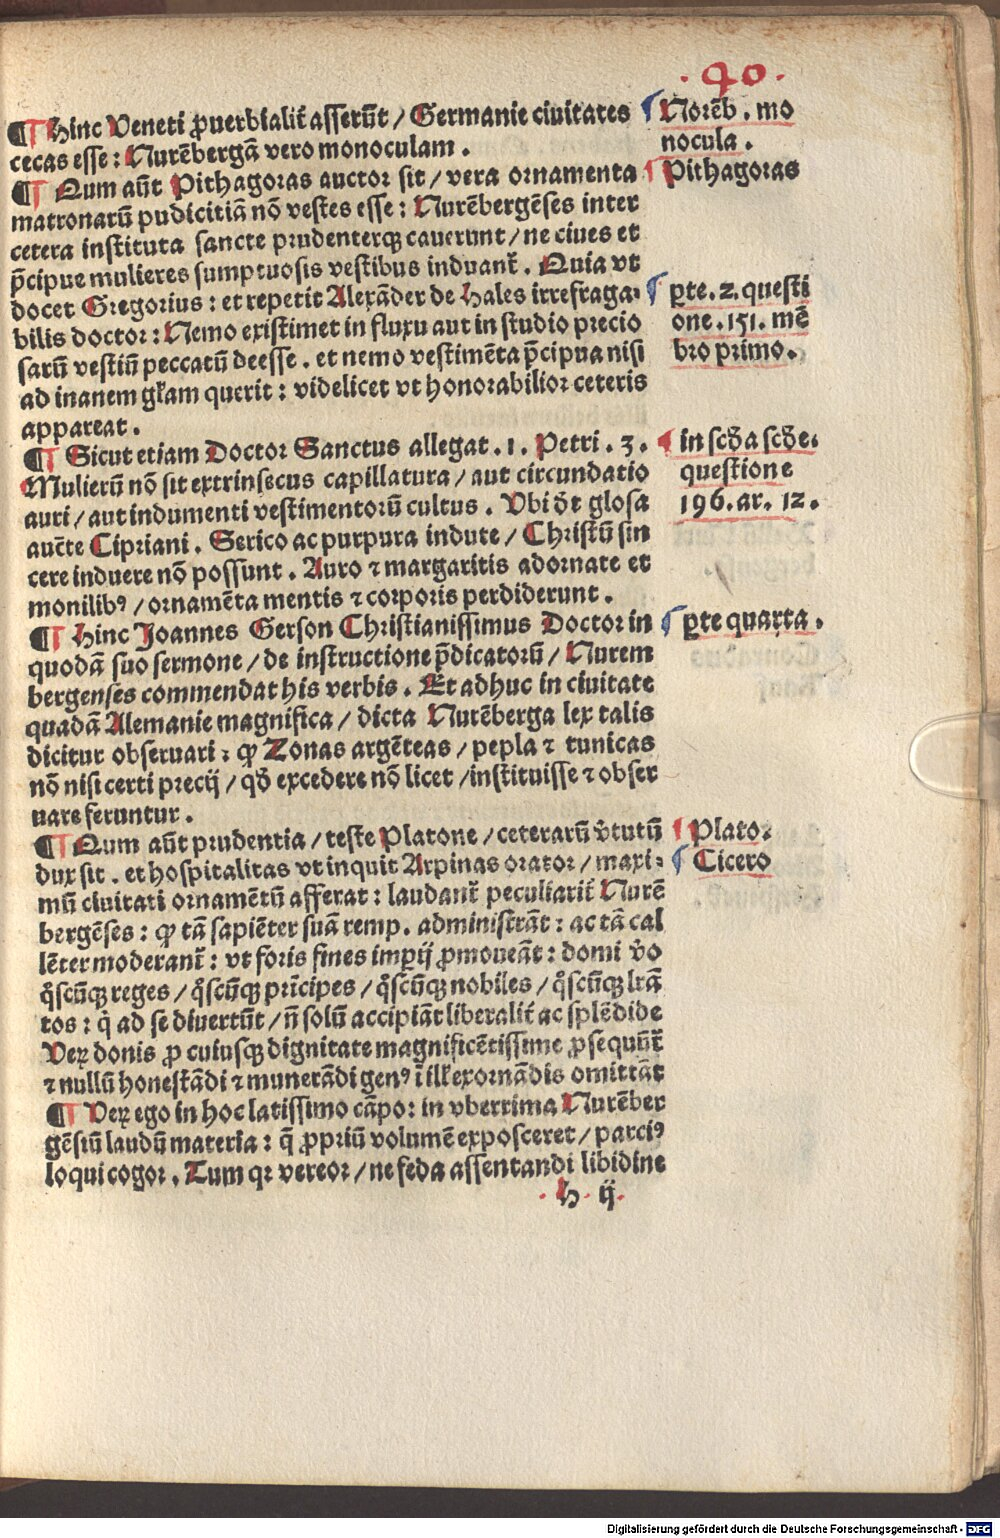 .40.
¶ Hinc Veneti ꝓuerbialit̃ asserũt / Germanie ciuitates
cecas esse : Nurẽbergã vero monoculam .
¶ Cum aũt Pithagoras auctor sit / vera ornamenta
matronarũ pudicitiã nõ vestes esse : Nurẽbergẽses inter
cetera instituta sancte prudenterqꝫ cauerunt / ne ciues et
p̃cipue mulieres sumptuosis vestibus induant᷑ . Quia vt
docet Gregorius : et repetit Alexãder de Hales irrefraga⸗
bilis doctor : Nemo existimet in fluxu aut in studio precio
sarũ vestiũ peccatũ deesse . et nemo vestimẽta p̃cipua nisi
ad inanem gl̃am querit : videlicet vt honorabilior ceteris
appareat .
¶ Sicut etiam Doctor Sanctus allegat . 1 . Petri . 3 .
Mulierũ nõ sit extrinsecus capillatura / aut circundatio
auri / aut indumenti vestimentorũ cultus . Vbi d̃t glosa
auct̃e Cipriani . Serico ac purpura indute / Christũ sin
cere induere nõ possunt . Auro ⁊ margaritis adornate et
monilibꝰ / ornamẽta mentis ⁊ corporis perdiderunt .
¶ Hinc Joannes Gerson Christianissimus Doctor in
quodã suo sermone / de instructione p̃dicatorũ / Nurem
bergenses commendat his verbis . Et adhuc in ciuitate
quadã Alemanie magnifica / dicta Nurẽberga lex talis
dicitur obseruari : ꝙ Zonas argẽteas / pepla ⁊ tunicas
nõ nisi certi precij / qd̃ excedere nõ licet / instituisse ⁊ obser
uare feruntur .
¶ Cum aũt prudentia / teste Platone / ceterarũ v̓tutũ
dux sit . et hospitalitas vt inquit Arpinas orator / maxi⸗
mũ ciuitati ornamẽtũ afferat : laudant᷑ peculiarit̃ Nurẽ
bergẽses : ꝙ tã sapiẽter suã remp . administrãt : ac tã cal
lẽter moderant᷑ : vt foris fines imꝑij ꝓmoueãt : domi v̓o
q̊scũqꝫ reges / q̊scũqꝫ prĩcipes / q̊scũqꝫ nobiles / q̊scũqꝫ lr̃a
tos : q̇ ad se diuertũt / ñ solũ accipiãt liberalit̃ ac splẽdide
Veꝝ donis ꝓ cuiusqꝫ dignitate magnificẽtissime ꝓsequũt᷑
⁊ nullũ honestãdi ⁊ munerãdi genꝰ ĩ ill̃ exornãdis omittãt
¶ Veꝝ ego in hoc latissimo cãpo : in vberrima Nurẽber
gẽsiũ laudũ materia : q̃ ꝓpriũ volumẽ exposceret / parciꝰ
loqui cogor . Tum qꝛ vereor / ne feda assentandi libidine
.h ij.
Norẽb . mo
nocula .
Pithagoras
ꝑte . 2 . questi
one . 151 . mẽ
bro primo .
in scd̃a scd̃e .
questione
196 . ar . 12 .
ꝑte quarta .
Plato .
Cicero
Digitalisierung gefördert durch die Deutsche Forschungsgemeinschaft - DFG